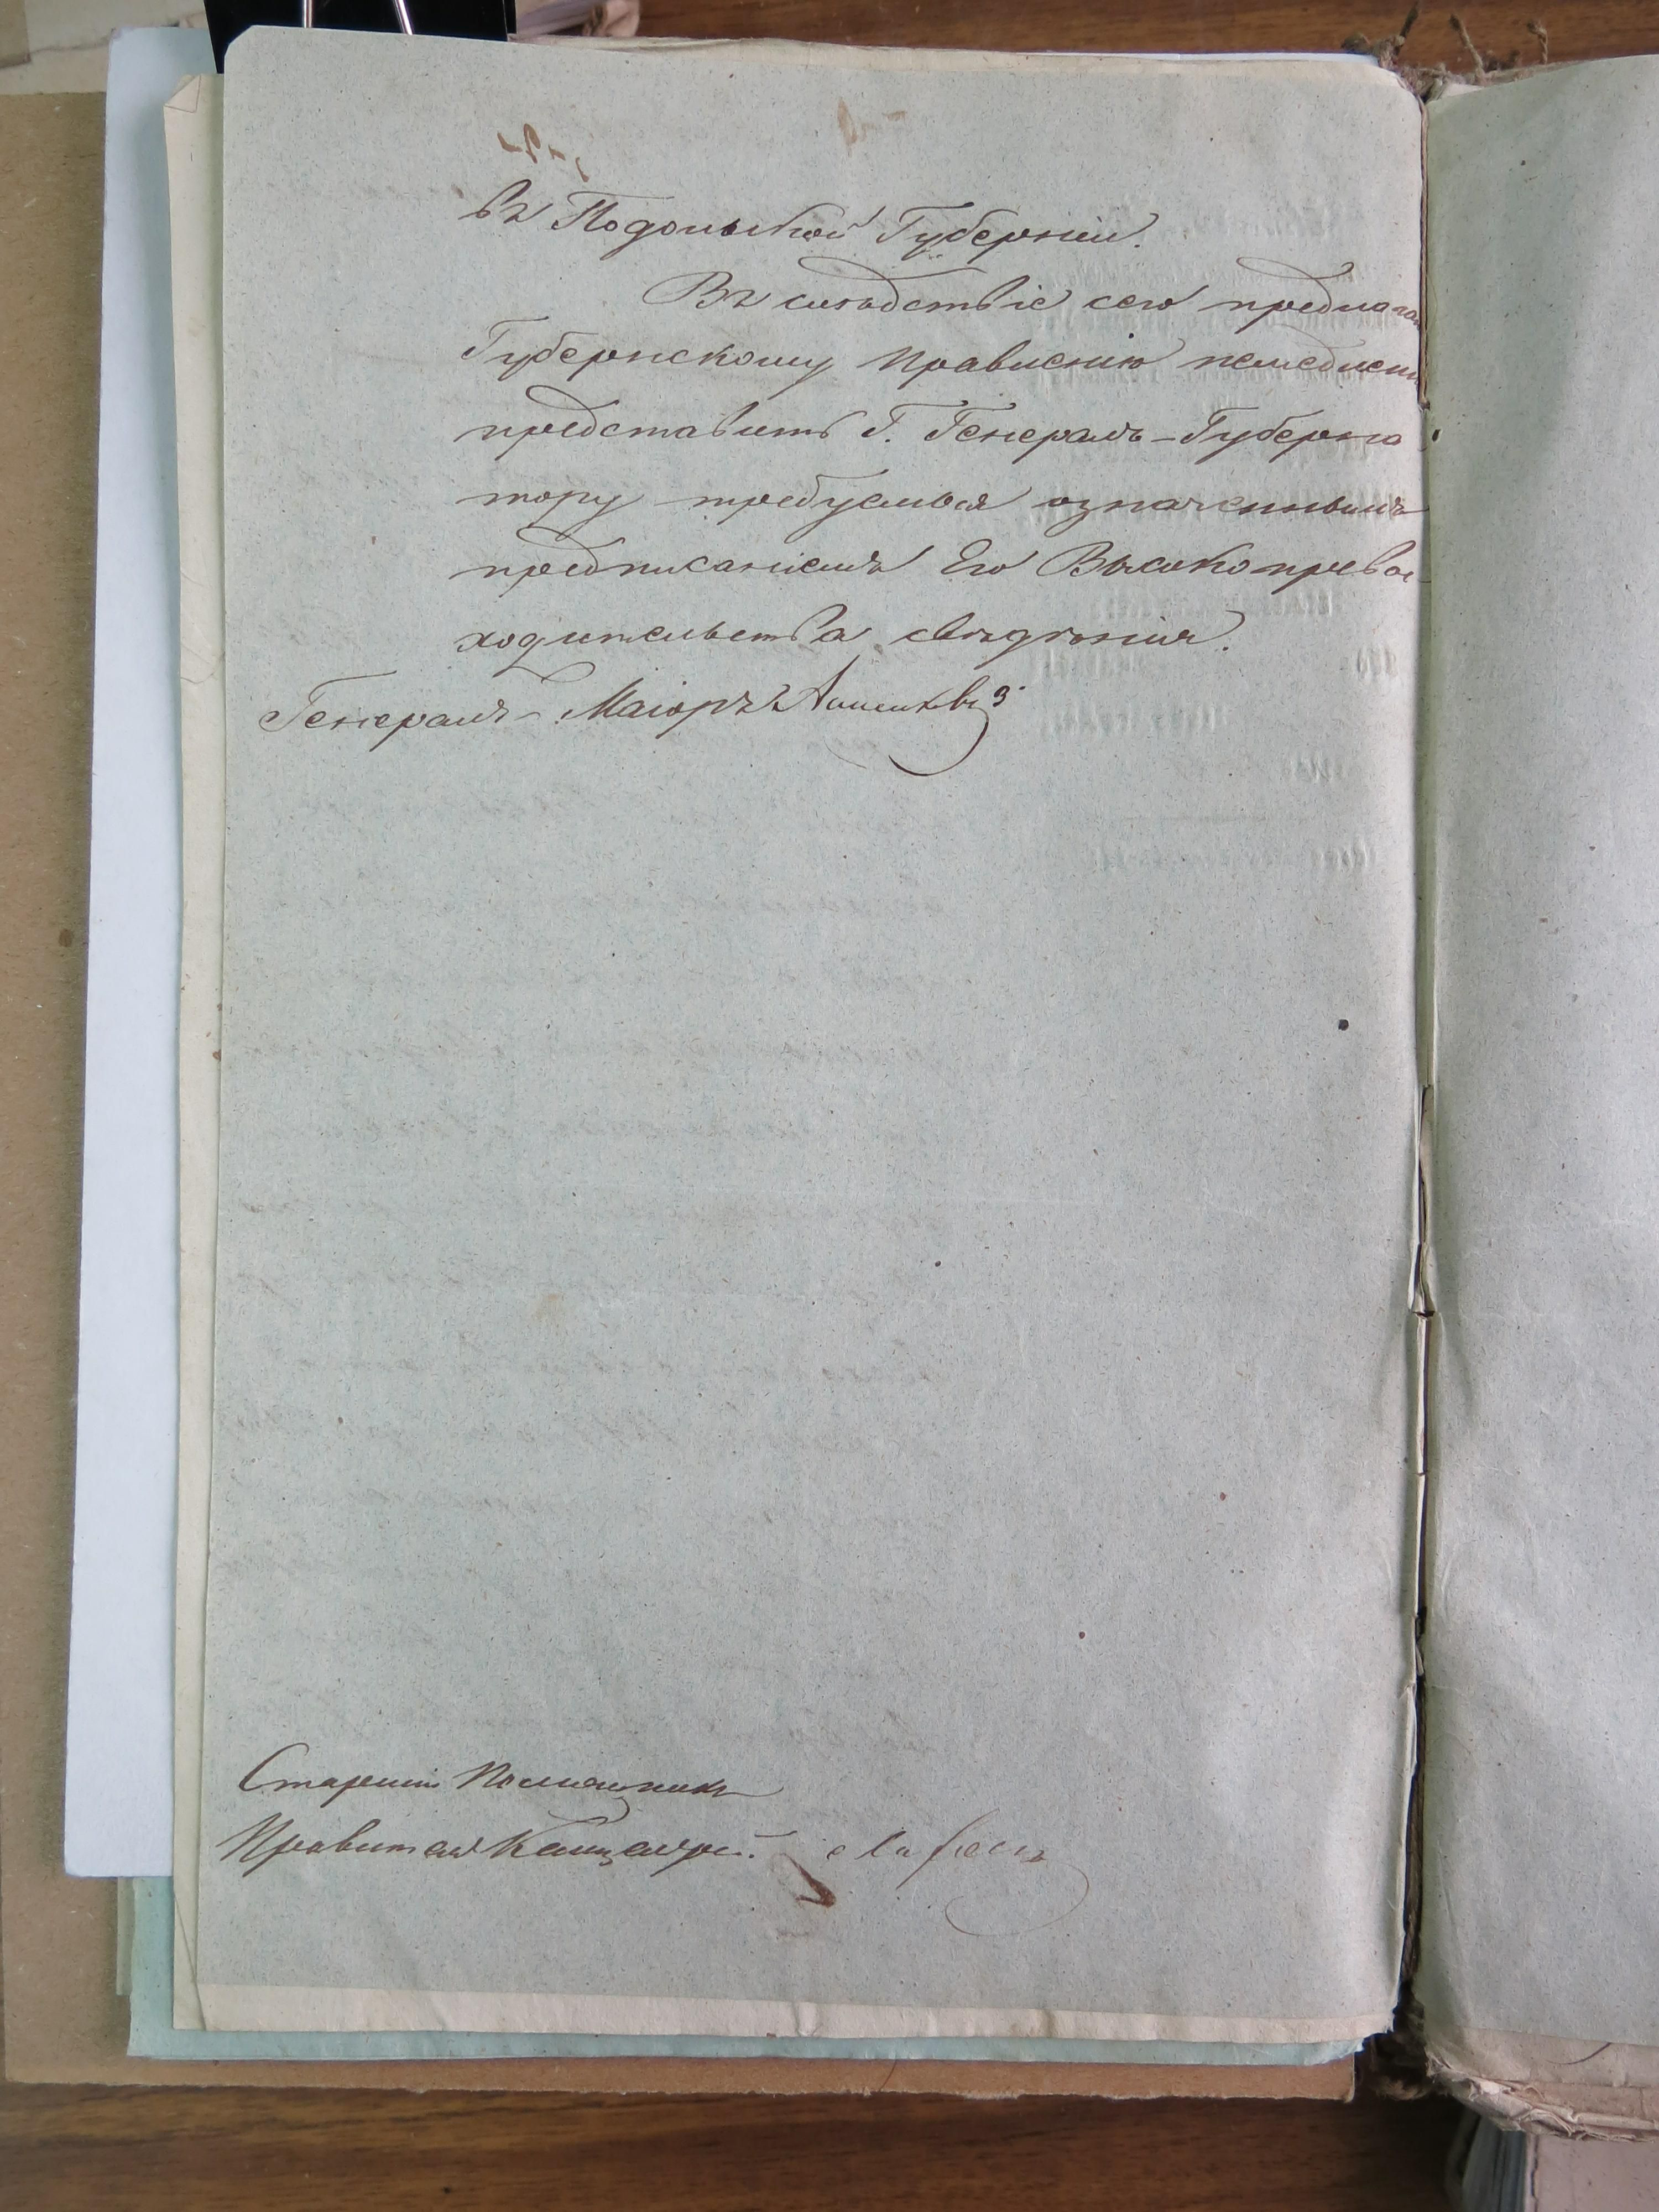 въ Подольской Губерніи.
Въ слѣдствіе сего предлагаю
Губернскому Правленію немедленно
представить Г. Генералъ-Губерна
тору требуемыя означеннымъ
предписаніемъ Его Высокопревос
ходительства свѣдѣнія.
Генералъ-Маіоръ Анненковъ
Старшій Помощникъ
Правителя Канцеляріи